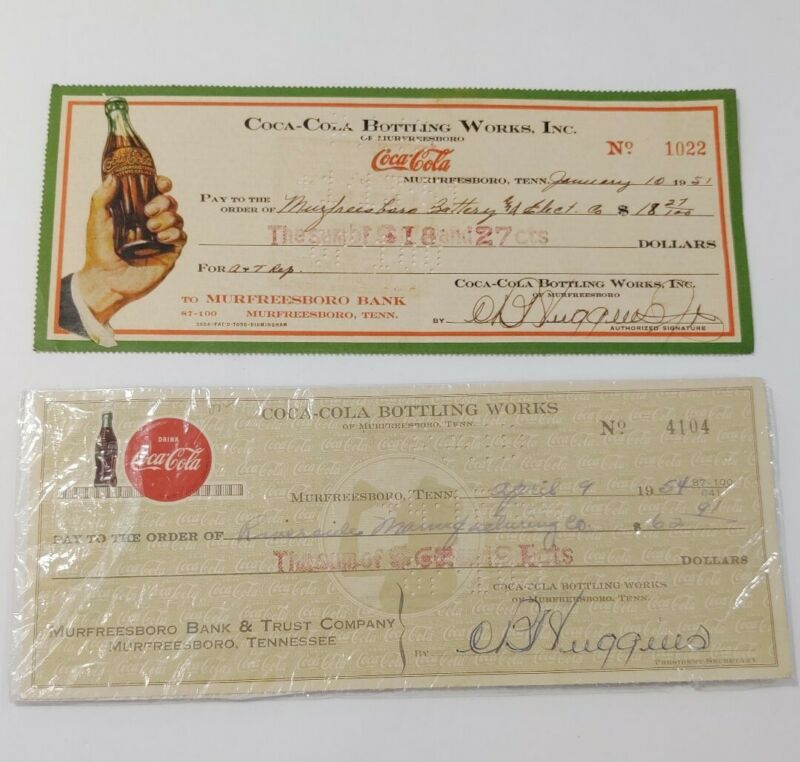 COCA-COLA BOTTLING WORKS, INC.
OF MURFREESBORO
Coca-Cola
Nº 1022
MURFREESBORO, TENN. January 10 1951
PAY TO THE
ORDER OF Murfreesboro Battery & Elect. Co $ 18 27/100
The sum of $18 and 27 cts DOLLARS
FOR a & T Rep.
COCA-COLA BOTTLING WORKS, INC.
OF MURFREESBORO
TO MURFREESBORO BANK
87-100 MURFREESBORO, TENN.
BY Huggins Jr
AUTHORIZED SIGNATURE
COCA-COLA BOTTLING WORKS
OF MURFREESBORO, TENN.
Nº 4104
DRINK
Coca-Cola
MURFREESBORO, TENN. April 9 1954 87-100
641
PAY TO THE ORDER OF Riverside Manufacturing Co. $ 62 91
The sum of cts DOLLARS
COCA-COLA BOTTLING WORKS
OF MURFREESBORO, TENN.
MURFREESBORO BANK & TRUST COMPANY
MURFREESBORO, TENNESSEE
BY Huggins
PRESIDENT-SECRETARY